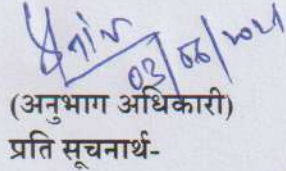 03/06/2021
(अनुभाग अधिकारी)
प्रति सूचनार्थ-